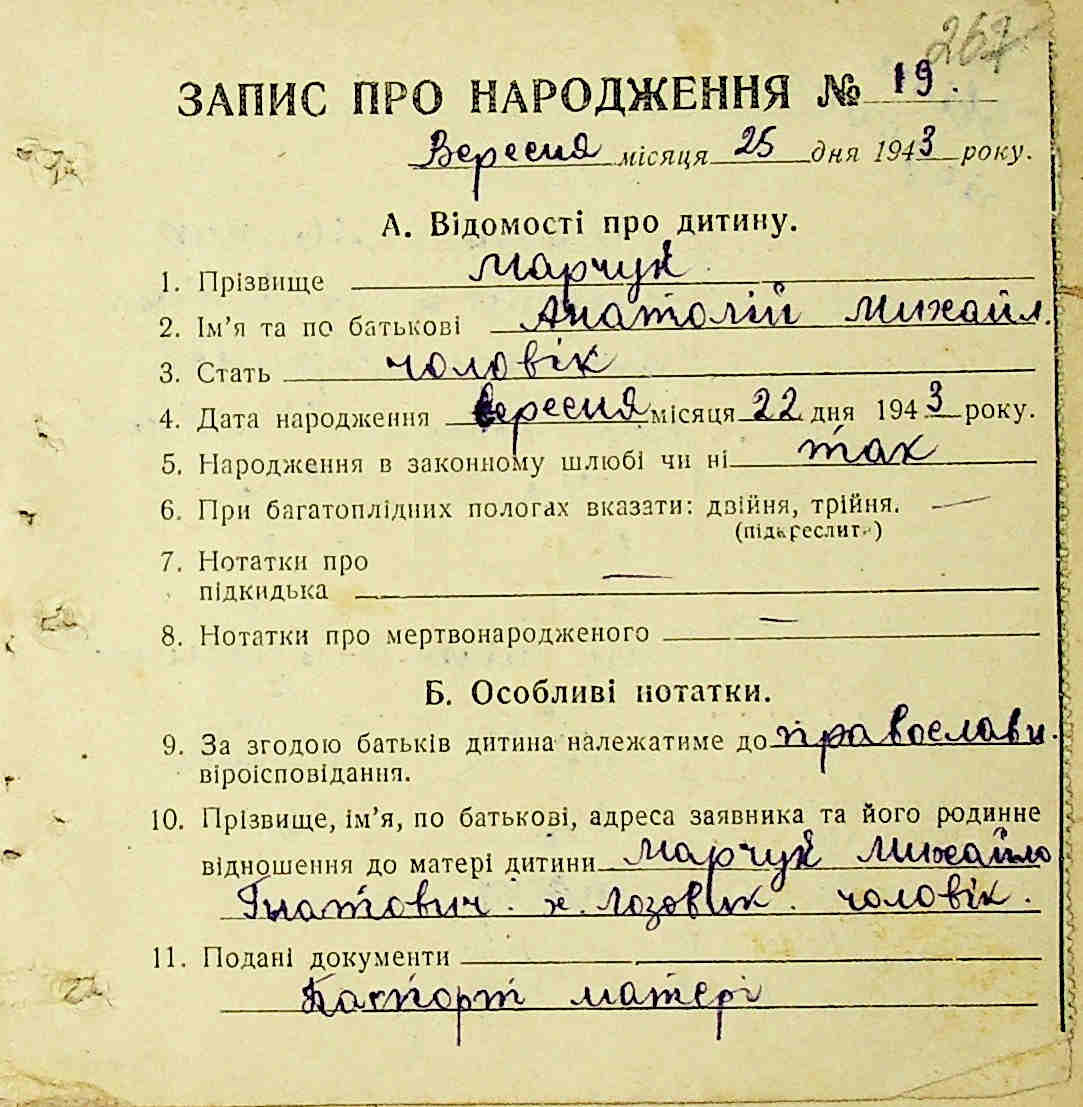 267
ЗАПИС ПРО НАРОДЖЕННЯ № 19.
Вересня місяця 25 дня 1943 року.
А. Відомості про дитину.
1. Прізвище Марчук
2. Ім'я та по батькові Анатолій Михайл.
3. Стать чоловік
4. Дата народження вересня місяця 22 дня 1943 року.
5. Народження в законному шлюбі чи ні так
6. При багатоплідних пологах вказати: двійня, трійня. —
(підкреслити)
7. Нотатки про
підкидька —
8. Нотатки про мертвонародженого —
Б. Особливі нотатки.
9. За згодою батьків дитина належатиме до православн.
віроісповідання.
10. Прізвище, ім'я, по батькові, адреса заявника та його родинне
відношення до матері дитини Марчук Михайло
Гнатович. х. Лозовик. чоловік.
11. Подані документи
Паспорт матері